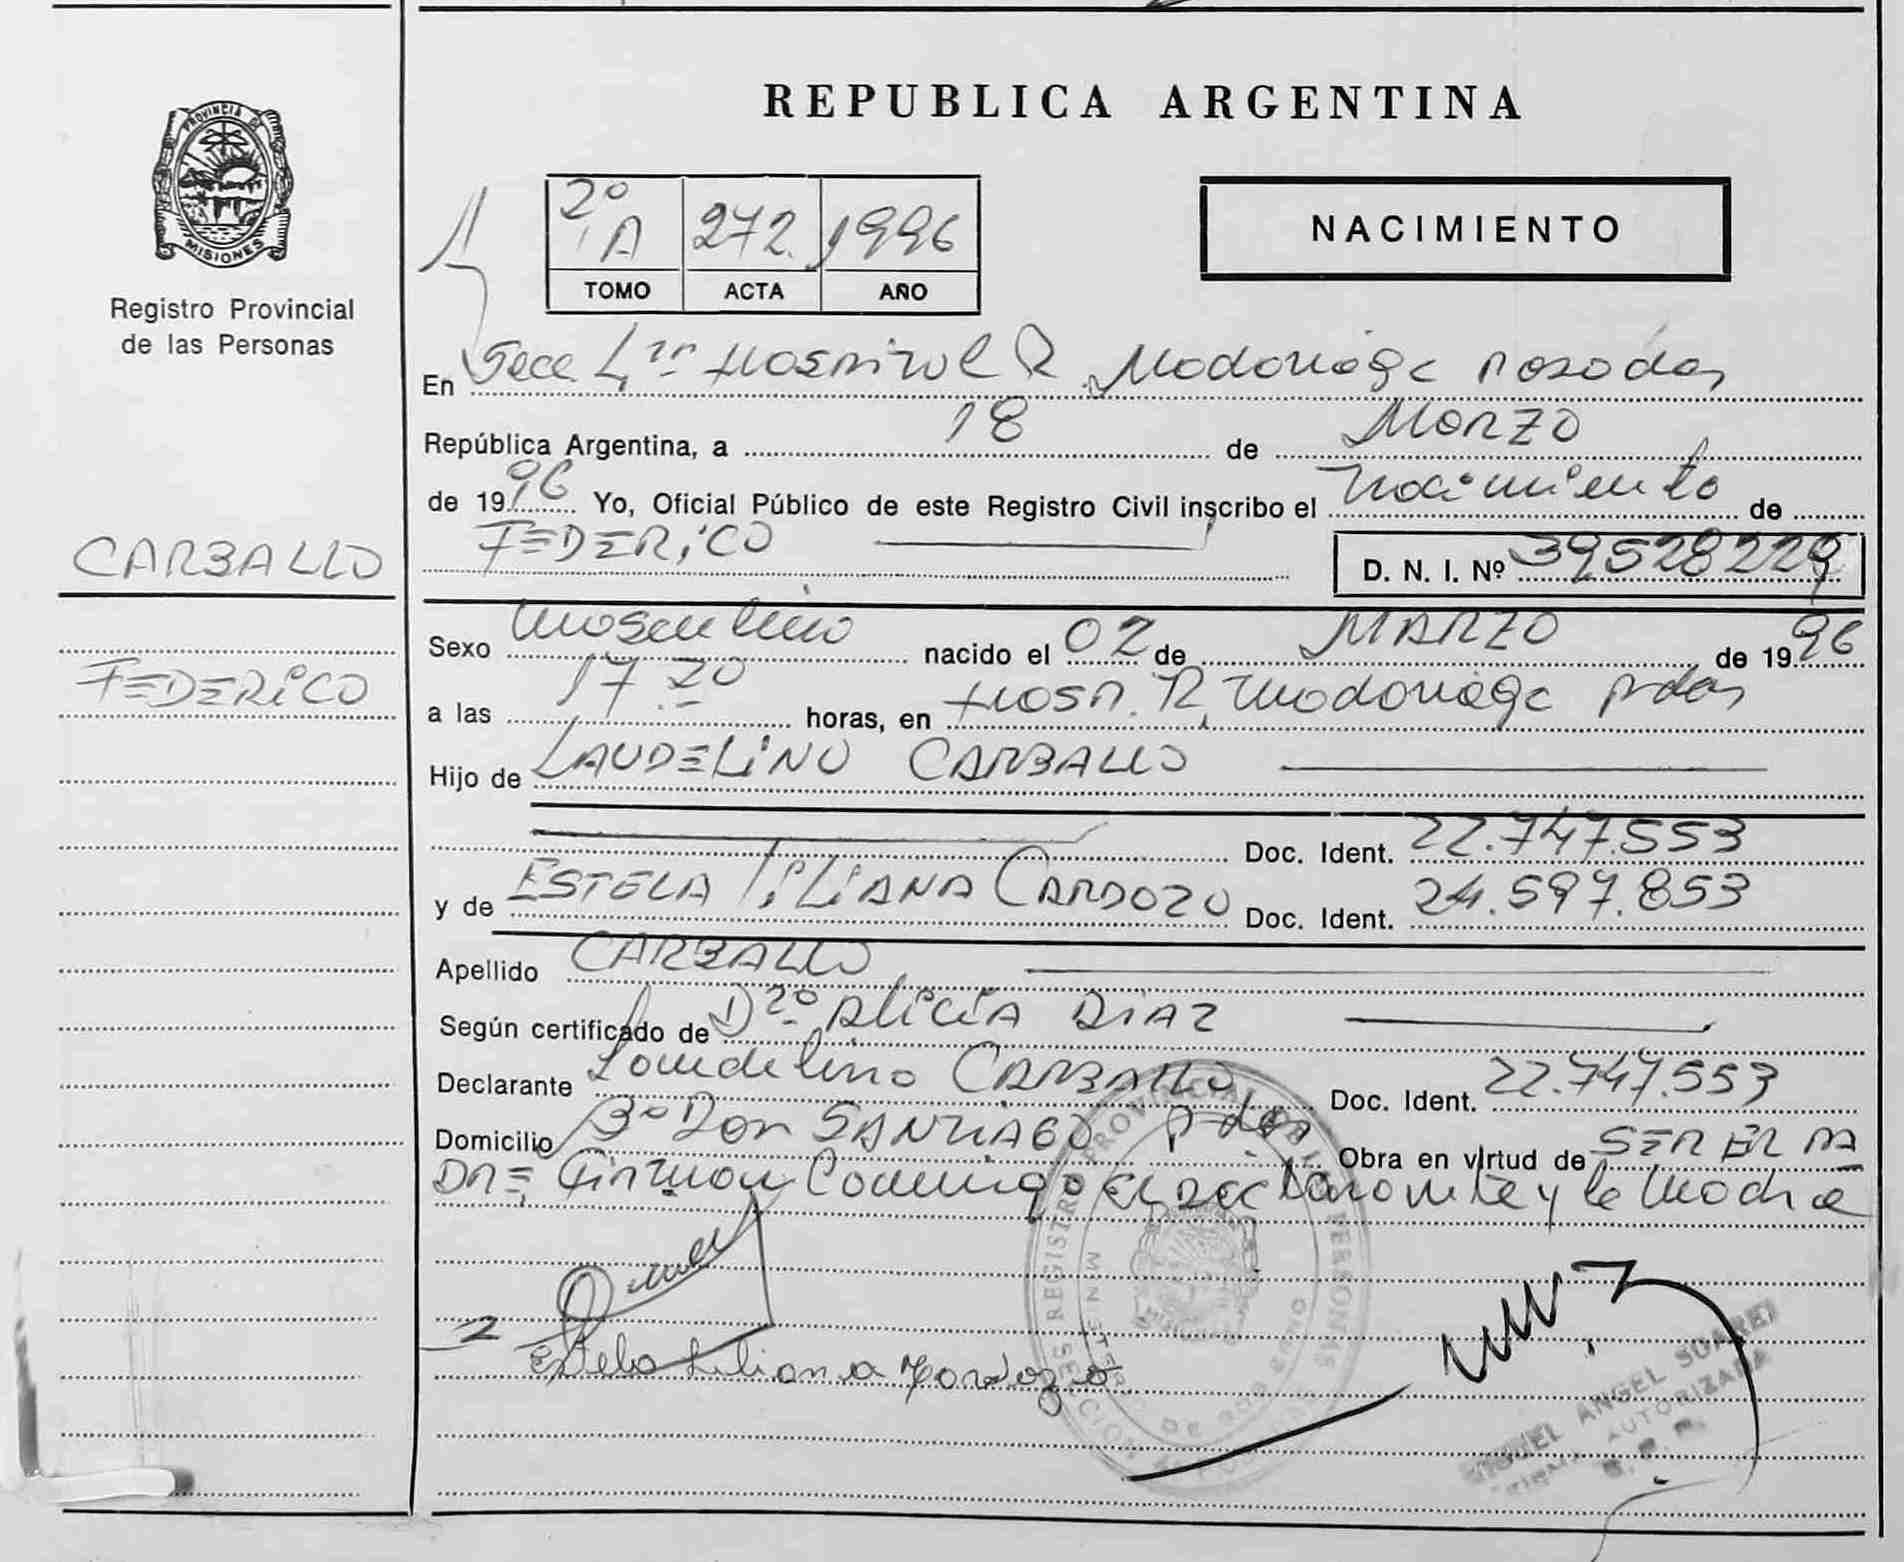 PROVINCIA DE
MISIONES
Registro Provincial
de las Personas
CARBALLO
FEDERICO
REPUBLICA ARGENTINA
2º A 272. 1996
TOMO ACTA AÑO
NACIMIENTO
En Secc 4ta Hospital R. Madariaga Posadas
República Argentina, a 18 de Marzo
de 1996 Yo, Oficial Público de este Registro Civil inscribo el Nacimiento de
FEDERICO D. N. I. Nº 39528229
Sexo Masculino nacido el 02 de MARZO de 1996
a las 17.20 horas, en Hosp. R. Madariaga Pdas
Hijo de LAUDELINO CARBALLO
Doc. Ident. 22.747.553
y de ESTELA LILIANA CARDOZO Doc. Ident. 24.597.853
Apellido CARBALLO
Según certificado de Dra Alicia DIAZ
Declarante Laudelino CARBALLO Doc. Ident. 22.747.553
Domicilio Bº Don SANTIAGO Pdas Obra en virtud de SER EL PA
DRE, Firman Conmigo el Declarante y la Madre
2 Estela Liliana Cardozo
MIGUEL ANGEL SUAREZ
FIRMA AUTORIZADA